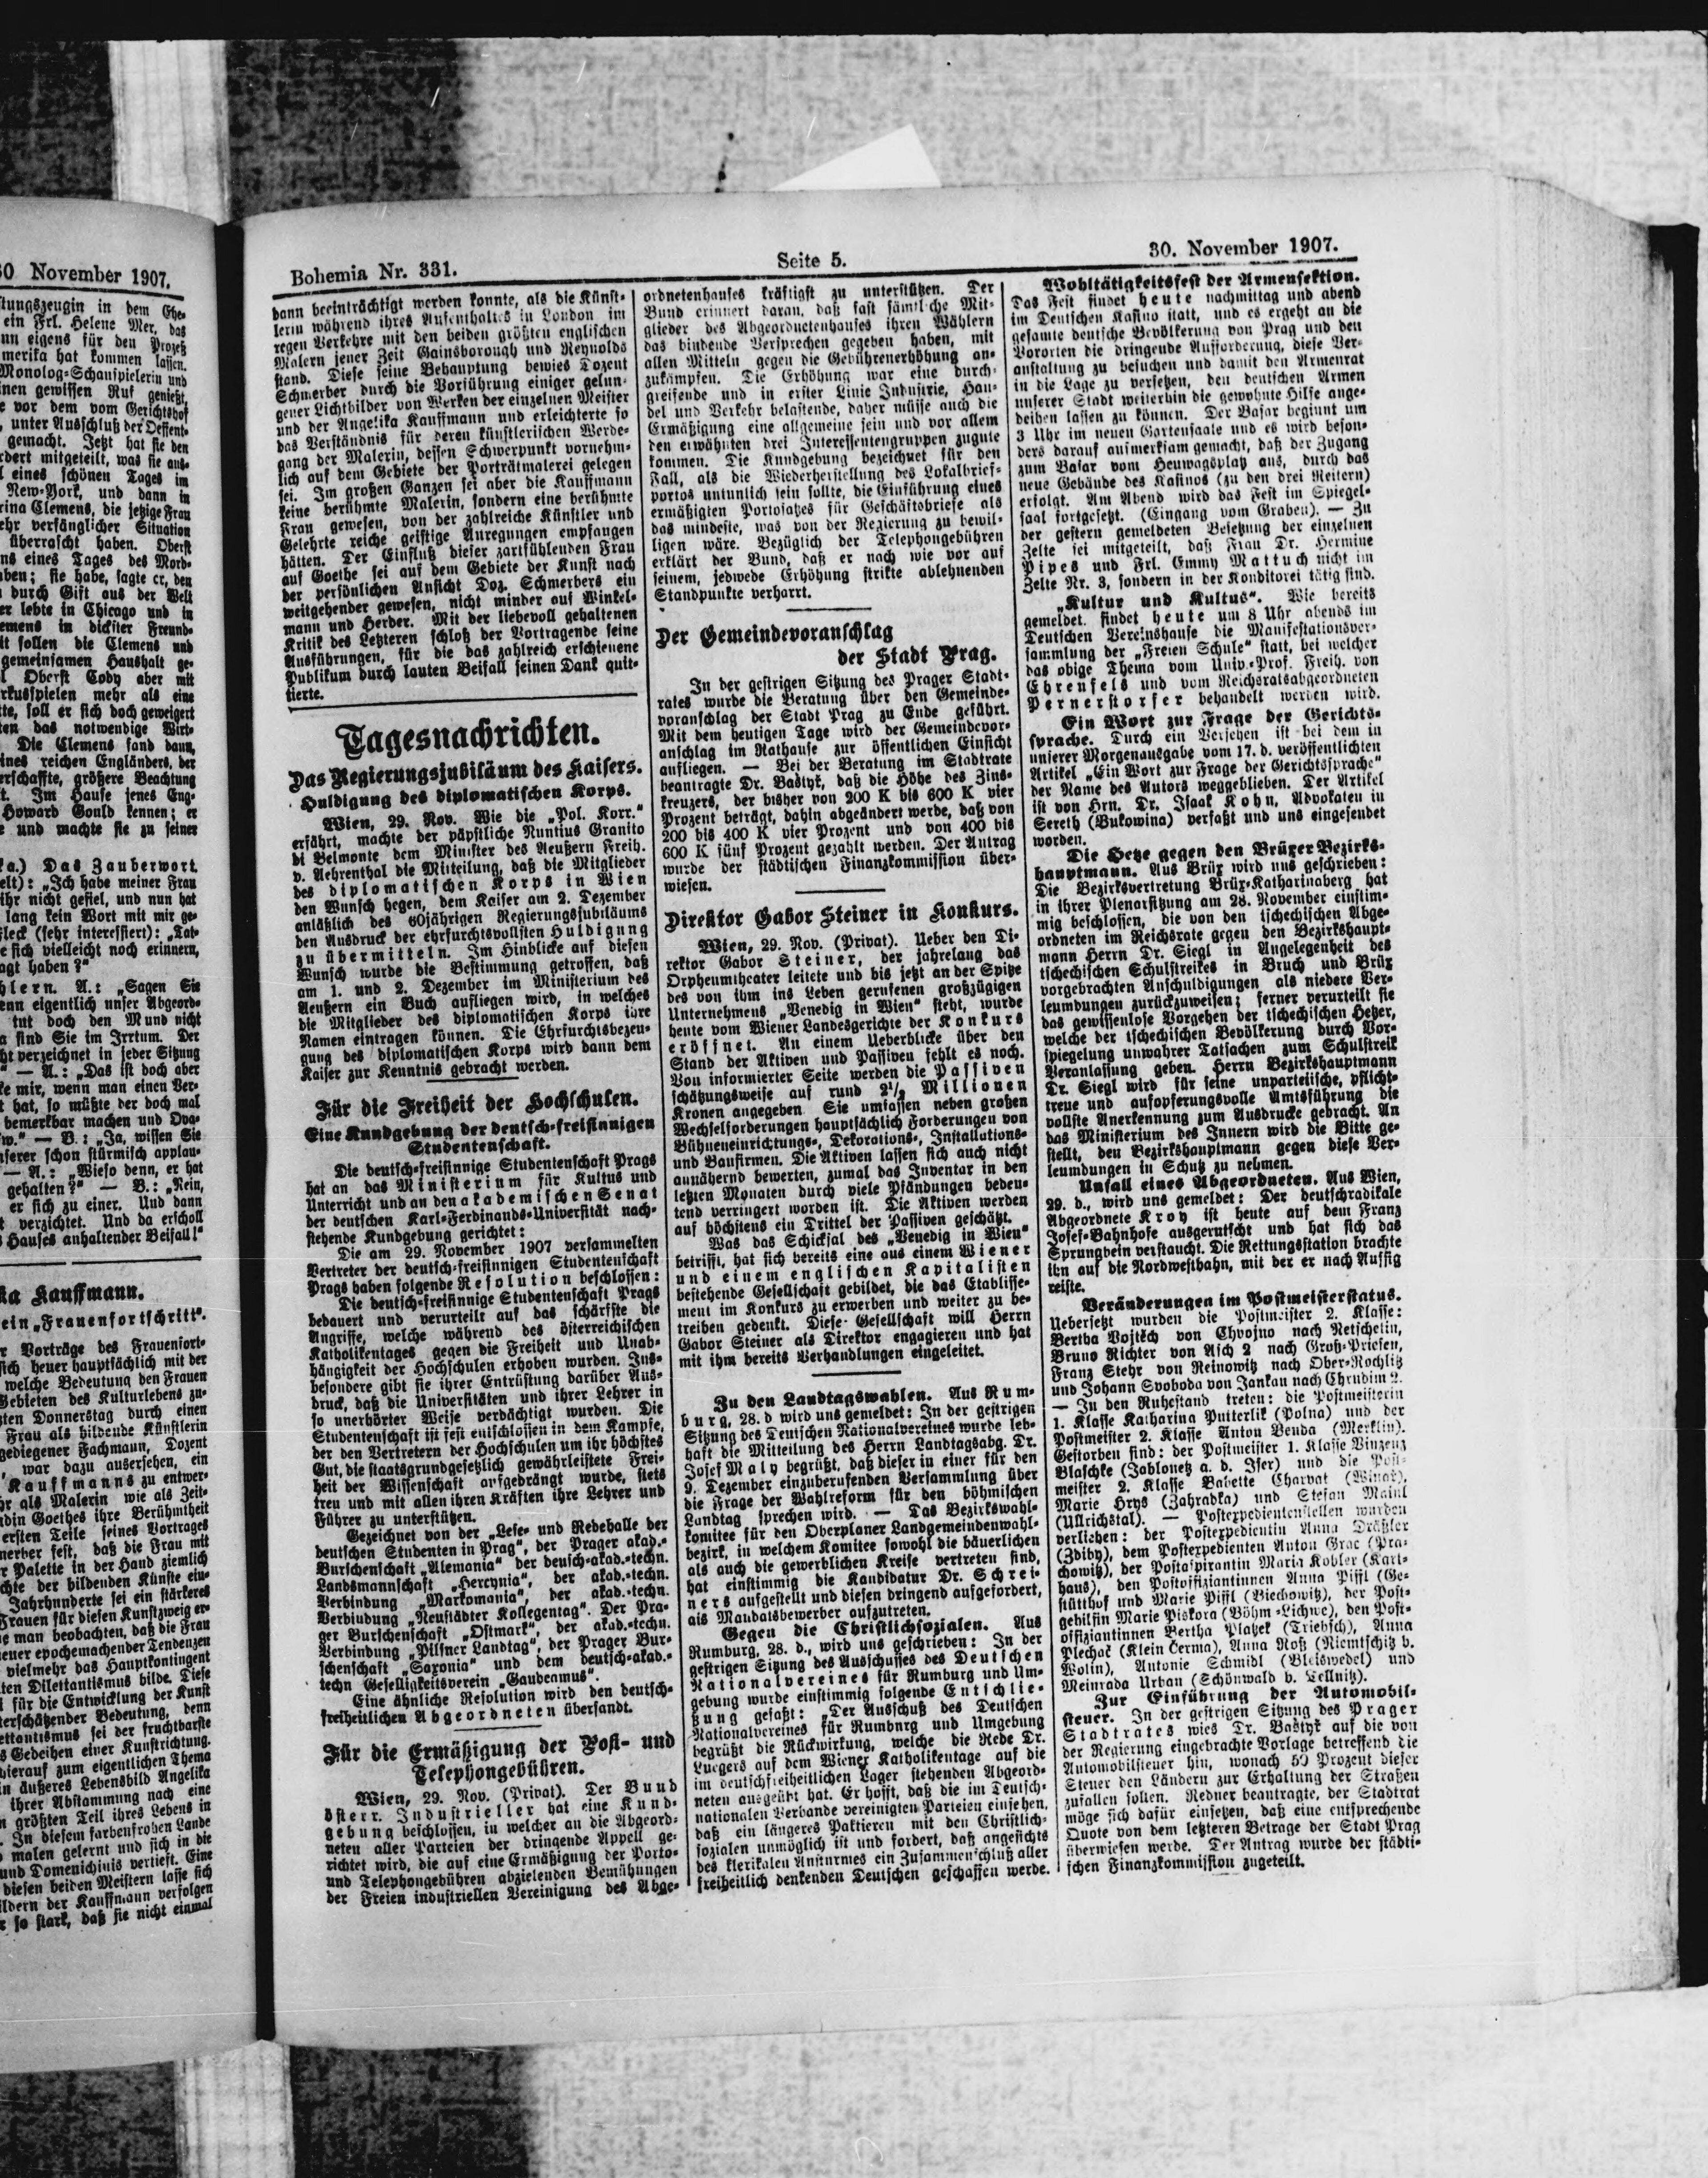 30 November 1907.
stungszeugin in dem Ehe-
ein Frl. Helene Mer, das
nn eigens für den Prozeß
merika hat kommen lassen.
Monolog-Schauspielerin und
inen gewissen Ruf genießt,
e vor dem vom Gerichtshof
, unter Ausschluß der Oeffent-
gemacht. Jetzt hat sie den
rdert mitgeteilt, was sie aus-
l eines schönen Tages im
New-York, und dann in
rina Clemens, die jetzige Frau
ehr verfänglicher Situation
überrascht haben. Oberst
ns eines Tages des Mord-
aben; sie habe, sagte er, den
durch Gift aus der Welt
er lebte in Chicago und in
emens in dickster Freund-
it sollen die Clemens und
gemeinsamen Haushalt ge-
l Oberst Cody aber mit
rkusspielen mehr als eine
tte, soll er sich doch geweigert
ten das notwendige Wirt-
Die Clemens fand dann,
ines reichen Engländers, der
erschaffte, größere Beachtung
t. Im Hause jenes Eng-
Howard Gould kennen; er
e und machte sie zu seiner
ka.) Das Zauberwort.
elt): „Ich habe meiner Frau
ihr nicht gefiel, und nun hat
lang kein Wort mit mir ge-
Fleck (sehr interessiert): „Tat-
e sich vielleicht noch erinnern,
agt haben?“
hlern. A.: „Sagen Sie
enn eigentlich unser Abgeord-
tut doch den Mund nicht
a sind Sie im Irrtum. Der
ht verzeichnet in jeder Sitzung
“ — A.: „Das ist doch aber
ke mir, wenn man einen Ver-
t hat, so müßte der doch mal
bemerkbar machen und Ova-
w.“ — B.: „Ja, wissen Sie
nserer schon stürmisch applau-
— A.: „Wieso denn, er hat
gehalten?“ — B.: „Nein,
er sich zu einer. Und dann
t verzichtet. Und da erscholl
s Hauses anhaltender Beifall!“
ka Kauffmann.
ein „Frauenfortschritt“.
r Vorträge des Frauenfort-
sich heuer hauptsächlich mit der
welche Bedeutung den Frauen
Gebieten des Kulturlebens zu-
zten Donnerstag durch einen
Frau als bildende Künstlerin
gediegener Fachmann, Dozent
, war dazu ausersehen, ein
Kauffmanns zu entwer-
hr als Malerin wie als Zeit-
ndin Goethes ihre Berühmtheit
ersten Teile seines Vortrages
merber fest, daß die Frau mit
r Palette in der Hand ziemlich
chte der bildenden Künste ein-
Jahrhunderte sei ein stärkeres
Frauen für diesen Kunstzweig er-
e man beobachten, daß die Frau
neuer epochemachender Tendenzen
vielmehr das Hauptkontingent
ten Dilettantismus bilde. Diese
l für die Entwicklung der Kunst
terschätzender Bedeutung, denn
ettantismus sei der fruchtbarste
s Gedeihen einer Kunstrichtung.
hierauf zum eigentlichen Thema
in äußeres Lebensbild Angelika
ihrer Abstammung nach eine
n größten Teil ihres Lebens in
. In diesem farbenfrohen Lande
malen gelernt und sich in die
und Domenichinis vertieft. Eine
diesen beiden Meistern lasse sich
ildern der Kauffmann verfolgen
r so stark, daß sie nicht einmal
Bohemia Nr. 331.
Seite 5.
30. November 1907.
dann beeinträchtigt werden konnte, als die Künst-
lerin während ihres Aufenthaltes in London im
regen Verkehre mit den beiden größten englischen
Malern jener Zeit Gainsborough und Reynolds
stand. Diese seine Behauptung bewies Dozent
Schmerber durch die Vorführung einiger gelun-
gener Lichtbilder von Werken der einzelnen Meister
und der Angelika Kauffmann und erleichterte so
das Verständnis für deren künstlerischen Werde-
gang der Malerin, dessen Schwerpunkt vornehm-
lich auf dem Gebiete der Porträtmalerei gelegen
sei. Im großen Ganzen sei aber die Kauffmann
keine berühmte Malerin, sondern eine berühmte
Frau gewesen, von der zahlreiche Künstler und
Gelehrte reiche geistige Anregungen empfangen
hätten. Der Einfluß dieser zartfühlenden Frau
auf Goethe sei auf dem Gebiete der Kunst nach
der persönlichen Ansicht Doz. Schmerbers ein
weitgehender gewesen, nicht minder auf Winkel-
mann und Herder. Mit der liebevoll gehaltenen
Kritik des Letzteren schloß der Vortragende seine
Ausführungen, für die das zahlreich erschienene
Publikum durch lauten Beifall seinen Dank quit-
tierte.
Tagesnachrichten.
Das Regierungsjubiläum des Kaisers.
Huldigung des diplomatischen Korps.
Wien, 29. Nov. Wie die „Pol. Korr.“
erfährt, machte der päpstliche Nuntius Granito
di Belmonte dem Minister des Aeußern Freih.
v. Aehrenthal die Mitteilung, daß die Mitglieder
des diplomatischen Korps in Wien
den Wunsch hegen, dem Kaiser am 2. Dezember
anläßlich des 60jährigen Regierungsjubiläums
den Ausdruck der ehrfurchtsvollsten Huldigung
zu übermitteln. Im Hinblicke auf diesen
Wunsch wurde die Bestimmung getroffen, daß
am 1. und 2. Dezember im Ministerium des
Aeußern ein Buch aufliegen wird, in welches
die Mitglieder des diplomatischen Korps ihre
Namen eintragen können. Die Ehrfurchtsbezeu-
gung des diplomatischen Korps wird dann dem
Kaiser zur Kenntnis gebracht werden.
Für die Freiheit der Hochschulen.
Eine Kundgebung der deutsch-freisinnigen
Studentenschaft.
Die deutsch-freisinnige Studentenschaft Prags
hat an das Ministerium für Kultus und
Unterricht und an den akademischen Senat
der deutschen Karl-Ferdinands-Universität nach-
stehende Kundgebung gerichtet:
Die am 29. November 1907 versammelten
Vertreter der deutsch-freisinnigen Studentenschaft
Prags haben folgende Resolution beschlossen:
Die deutsch-freisinnige Studentenschaft Prags
bedauert und verurteilt auf das schärfste die
Angriffe, welche während des österreichischen
Katholikentages gegen die Freiheit und Unab-
hängigkeit der Hochschulen erhoben wurden. Ins-
besondere gibt sie ihrer Entrüstung darüber Aus-
druck, daß die Universitäten und ihrer Lehrer in
so unerhörter Weise verdächtigt wurden. Die
Studentenschaft ist fest entschlossen in dem Kampfe,
der den Vertretern der Hochschulen um ihr höchstes
Gut, die staatsgrundgesetzlich gewährleistete Frei-
heit der Wissenschaft aufgedrängt wurde, stets
treu und mit allen ihren Kräften ihre Lehrer und
Führer zu unterstützen.
Gezeichnet von der „Lese- und Redehalle der
deutschen Studenten in Prag“, der Prager akad.-
Burschenschaft „Alemania“ der deusch-akad.-techn.
Landsmannschaft „Hercynia“, der akad.-techn.
Verbindung „Markomania“, der akad.-techn.
Verbindung „Neustädter Kollegentag“. Der Pra-
ger Burschenschaft „Ostmark“, der akad.-techn.
Verbindung „Pilsner Landtag“, der Prager Bur-
schenschaft „Saxonia“ und dem deutsch-akad.-
techn Geselligkeitsverein „Gaudeamus“.
Eine ähnliche Resolution wird den deutsch-
freiheitlichen Abgeordneten übersandt.
Für die Ermäßigung der Post- und
Telephongebühren.
Wien, 29. Nov. (Privat). Der Bund
österr. Industrieller hat eine Kund-
gebung beschlossen, in welcher an die Abgeord-
neten aller Parteien der dringende Appell ge-
richtet wird, die auf eine Ermäßigung der Porto-
und Telephongebühren abzielenden Bemühungen
der Freien industriellen Vereinigung des Abge-
ordnetenhauses kräftigst zu unterstützen. Der
Bund erinnert daran, daß fast sämtliche Mit-
glieder des Abgeordnetenhauses ihren Wählern
das bindende Versprechen gegeben haben, mit
allen Mitteln gegen die Gebührenerhöhung an-
zukämpfen. Die Erhöhung war eine durch-
greifende und in erster Linie Industrie, Han-
del und Verkehr belastende, daher müsse auch die
Ermäßigung eine allgemeine sein und vor allem
den erwähnten drei Interessentengruppen zugute
kommen. Die Kundgebung bezeichnet für den
Fall, als die Wiederherstellung des Lokalbrief-
portos untunlich sein sollte, die Einführung eines
ermäßigten Portosatzes für Geschäftsbriefe als
das mindeste, was von der Regierung zu bewil-
ligen wäre. Bezüglich der Telephongebühren
erklärt der Bund, daß er nach wie vor auf
seinem, jedwede Erhöhung strikte ablehnenden
Standpunkte verharrt.
Der Gemeindevoranschlag
der Stadt Prag.
In der gestrigen Sitzung des Prager Stadt-
rates wurde die Beratung über den Gemeinde-
voranschlag der Stadt Prag zu Ende geführt.
Mit dem heutigen Tage wird der Gemeindevor-
anschlag im Rathause zur öffentlichen Einsicht
aufliegen. — Bei der Beratung im Stadtrate
beantragte Dr. Baštyř, daß die Höhe des Zins-
kreuzers, der bisher von 200 K bis 600 K vier
Prozent beträgt, dahin abgeändert werde, daß von
200 bis 400 K vier Prozent und von 400 bis
600 K fünf Prozent gezahlt werden. Der Antrag
wurde der städtischen Finanzkommission über-
wiesen.
Direktor Gabor Steiner in Konkurs.
Wien, 29. Nov. (Privat). Ueber den Di-
rektor Gabor Steiner, der jahrelang das
Orpheumtheater leitete und bis jetzt an der Spitze
des von ihm ins Leben gerufenen großzügigen
Unternehmens „Venedig in Wien“ steht, wurde
heute vom Wiener Landesgerichte der Konkurs
eröffnet. An einem Ueberblicke über den
Stand der Aktiven und Passiven fehlt es noch.
Von informierter Seite werden die Passiven
schätzungsweise auf rund 2½ Millionen
Kronen angegeben Sie umfassen neben großen
Wechselforderungen hauptsächlich Forderungen von
Bühneneinrichtungs-, Dekorations-, Installations-
und Baufirmen. Die Aktiven lassen sich auch nicht
annähernd bewerten, zumal das Inventar in den
letzten Monaten durch viele Pfändungen bedeu-
tend verringert worden ist. Die Aktiven werden
auf höchstens ein Drittel der Passiven geschätzt.
Was das Schicksal des „Venedig in Wien“
betrifft, hat sich bereits eine aus einem Wiener
und einem englischen Kapitalisten
bestehende Gesellschaft gebildet, die das Etablisse-
ment im Konkurs zu erwerben und weiter zu be-
treiben gedenkt. Diese Gesellschaft will Herrn
Gabor Steiner als Direktor engagieren und hat
mit ihm bereits Verhandlungen eingeleitet.
Zu den Landtagswahlen. Aus Rum-
burg, 28. d wird uns gemeldet: In der gestrigen
Sitzung des Deutschen Nationalvereines wurde leb-
haft die Mitteilung des Herrn Landtagsabg. Dr.
Josef Maly begrüßt, daß dieser in einer für den
9. Dezember einzuberufenden Versammlung über
die Frage der Wahlreform für den böhmischen
Landtag sprechen wird. — Das Bezirkswahl-
komitee für den Oberplaner Landgemeindenwahl-
bezirk, in welchem Komitee sowohl die bäuerlichen
als auch die gewerblichen Kreise vertreten sind,
hat einstimmig die Kandidatur Dr. Schrei-
ners aufgestellt und diesen dringend aufgefordert,
als Mandatsbewerber aufzutreten.
Gegen die Christlichsozialen. Aus
Rumburg, 28. d., wird uns geschrieben: In der
gestrigen Sitzung des Ausschusses des Deutschen
Nationalvereines für Rumburg und Um-
gebung wurde einstimmig folgende Entschlie-
ßung gefaßt: „Der Ausschuß des Deutschen
Nationalvereines für Rumburg und Umgebung
begrüßt die Rückwirkung, welche die Rede Dr.
Luegers auf dem Wiener Katholikentage auf die
im deutschfreiheitlichen Lager stehenden Abgeord-
neten ausgeübt hat. Er hofft, daß die im Deutsch-
nationalen Verbande vereinigten Parteien einsehen,
daß ein längeres Paktieren mit den Christlich-
sozialen unmöglich ist und fordert, daß angesichts
des klerikalen Ansturmes ein Zusammenschluß aller
freiheitlich denkenden Deutschen geschaffen werde.
Wohltätigkeitsfest der Armensektion.
Das Fest findet heute nachmittag und abend
im Deutschen Kasino statt, und es ergeht an die
gesamte deutsche Bevölkerung von Prag und den
Vororten die dringende Aufforderung, diese Ver-
anstaltung zu besuchen und damit den Armenrat
in die Lage zu versetzen, den deutschen Armen
unserer Stadt weiterhin die gewohnte Hilfe ange-
deihen lassen zu können. Der Basar beginnt um
3 Uhr im neuen Gartensaale und es wird beson-
ders darauf aufmerksam gemacht, daß der Zugang
zum Basar vom Heuwagsplatz aus, durch das
neue Gebäude des Kasinos (zu den drei Reitern)
erfolgt. Am Abend wird das Fest im Spiegel-
saal fortgesetzt. (Eingang vom Graben). — Zu
der gestern gemeldeten Besetzung der einzelnen
Zelte sei mitgeteilt, daß Frau Dr. Hermine
Pipes und Frl. Emmy Mattuch nicht im
Zelte Nr. 3, sondern in der Konditorei tätig sind.
„Kultur und Kultus“. Wie bereits
gemeldet, findet heute um 8 Uhr abends im
Deutschen Vereinshause die Manifestationsver-
sammlung der „Freien Schule“ statt, bei welcher
das obige Thema vom Univ.-Prof. Freih. von
Ehrenfels und vom Reichsratsabgeordneten
Pernerstorfer behandelt werden wird.
Ein Wort zur Frage der Gerichts-
sprache. Durch ein Versehen ist bei dem in
unserer Morgenausgabe vom 17. d. veröffentlichten
Artikel „Ein Wort zur Frage der Gerichtssprache“
der Name des Autors weggeblieben. Der Artikel
ist von Hrn. Dr. Isaak Kohn, Advokaten in
Sereth (Bukowina) verfaßt und uns eingesendet
worden.
Die Hetze gegen den Brüxer Bezirks-
hauptmann. Aus Brüx wird uns geschrieben:
Die Bezirksvertretung Brüx-Katharinaberg hat
in ihrer Plenarsitzung am 28. November einstim-
mig beschlossen, die von den tschechischen Abge-
ordneten im Reichsrate gegen den Bezirkshaupt-
mann Herrn Dr. Siegl in Angelegenheit des
tschechischen Schulstreikes in Bruch und Brüx
vorgebrachten Anschuldigungen als niedere Ver-
leumdungen zurückzuweisen; ferner verurteilt sie
das gewissenlose Vorgehen der tschechischen Hetzer,
welche der tschechischen Bevölkerung durch Vor-
spiegelung unwahrer Tatsachen zum Schulstreik
Veranlassung geben. Herrn Bezirkshauptmann
Dr. Siegl wird für seine unparteiische, pflicht-
treue und aufopferungsvolle Amtsführung die
vollste Anerkennung zum Ausdrucke gebracht. An
das Ministerium des Innern wird die Bitte ge-
stellt, den Bezirkshauptmann gegen diese Ver-
leumdungen in Schutz zu nehmen.
Unfall eines Abgeordneten. Aus Wien,
29. d., wird uns gemeldet: Der deutschradikale
Abgeordnete Kroy ist heute auf dem Franz
Josef-Bahnhofe ausgerutscht und hat sich das
Sprungbein verstaucht. Die Rettungsstation brachte
ihn auf die Nordwestbahn, mit der er nach Aussig
reiste.
Veränderungen im Postmeisterstatus.
Uebersetzt wurden die Postmeister 2. Klasse:
Bertha Vojtěch von Chvojno nach Netschetin,
Bruno Richter von Asch 2 nach Groß-Priesen,
Franz Stehr von Reinowitz nach Ober-Rochlitz
und Johann Svoboda von Jankau nach Chrudim 2.
— In den Ruhestand treten: die Postmeisterin
1. Klasse Katharina Putterlik (Polna) und der
Postmeister 2. Klasse Anton Benda (Merklin).
Gestorben sind: der Postmeister 1. Klasse Vinzenz
Blaschke (Jablonetz a. d. Iser) und die Post-
meister 2. Klasse Babette Charvat (Winař),
Marie Hrys (Zahradka) und Stefan Maiul
(Ullrichstal). — Postexpedientenstellen wurden
verliehen: der Postexpedientin Anna Dräßler
(Zdiby), dem Postexpedienten Anton Grac (Pra-
chowitz), der Postaspirantin Maria Kobler (Karl-
haus), den Postoffiziantinnen Anna Piffl (Ge-
stütthof und Marie Piffl (Biechowitz), der Post-
gehilfin Marie Piskora (Böhm.-Lichwe), den Post-
offiziantinnen Bertha Platzek (Triebsch), Anna
Plechač (Klein Čerma), Anna Roß (Niemtschitz b.
Wolin), Antonie Schmidl (Bleiswedel) und
Meinrada Urban (Schönwald b. Tellnitz).
Zur Einführung der Automobil-
steuer. In der gestrigen Sitzung des Prager
Stadtrates wies Dr. Baštyř auf die von
der Regierung eingebrachte Vorlage betreffend die
Automobilsteuer hin, wonach 50 Prozent dieser
Steuer den Ländern zur Erhaltung der Straßen
zufallen sollen. Redner beantragte, der Stadtrat
möge sich dafür einsetzen, daß eine entsprechende
Quote von dem letzteren Betrage der Stadt Prag
überwiesen werde. Der Antrag wurde der städti-
schen Finanzkommission zugeteilt.